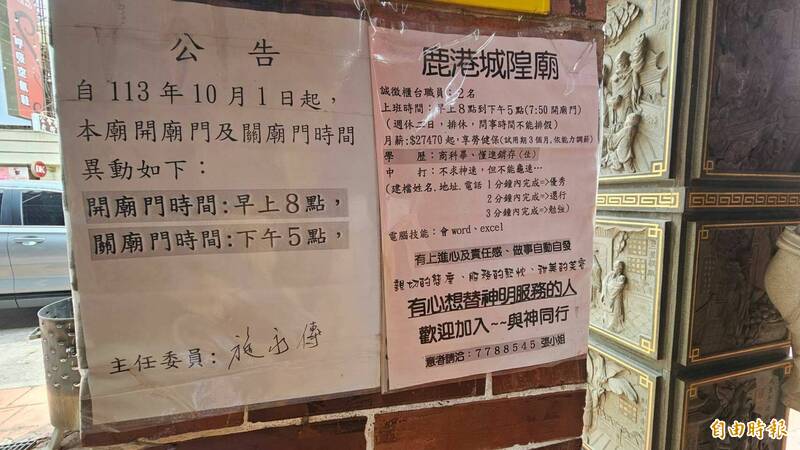 公告
自113年10月1日起，
本廟開廟門及關廟門時間
異動如下：
開廟門時間：早上8點，
關廟門時間：下午5點，
主任委員：
鹿港城隍廟
誠徵櫃台職員：2名
上班時間：早上8點到下午5點(7:50開廟門)
(週休二日，排休，問事時間不能排假)
月薪:$27470起，享勞健保(試用期3個月，依能力調薪)
學　歷：商科畢、懂進銷存(佳)
中　打：不求神速，但不能龜速…
(建檔姓名.地址.電話 1分鐘內完成=>優秀
2分鐘內完成=>還行
3分鐘內完成=>勉強)
電腦技能：會word、excel
有上進心及責任感、做事自動自發
親切的態度、服務的熱忱、甜美的笑容
有心想替神明服務的人
歡迎加入~~與神同行
意者請洽：7788545 張小姐
自由時報